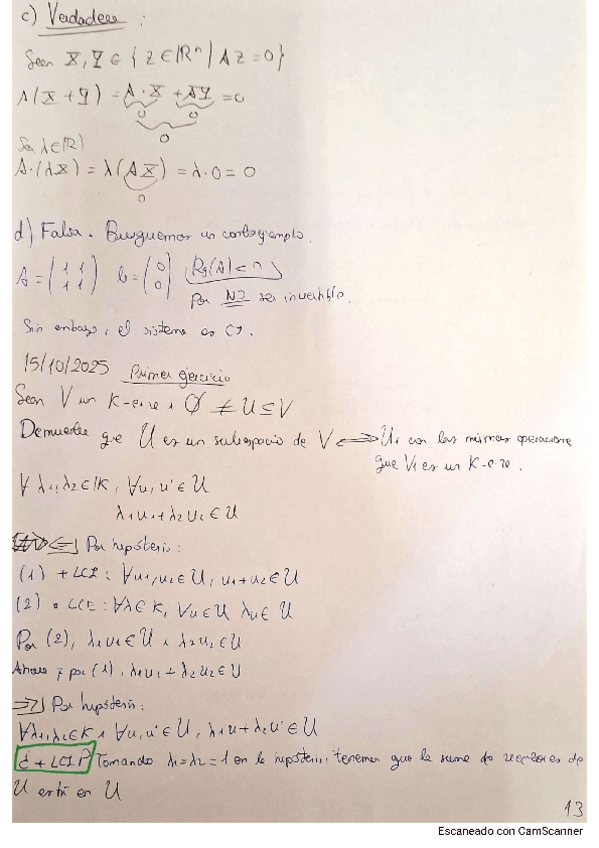 c) Verdadero:
Sean X, Y ∈ { Z ∈ ℝⁿ | AZ = 0 }
A(X + Y) = A·X + AY = 0
0 0
0
Sea λ ∈ ℝ)
A·(λX) = λ(AX) = λ·0 = 0
0
d) Falsa. Busquemos un contraejemplo.
A = (1 1 / 1 1) b = (0 / 0) Rg(A) < n
Por NO ser invertible.
Sin embargo, el sistema es CI.
15/10/2025 Primer ejercicio
Sean V un K-e.v. ∅ ≠ U ⊆ V
Demuestre que U es un subespacio de V ⟺ U, con las mismas operaciones
que V, es un K-e.v.
∀ λ₁, λ₂ ∈ K, ∀ u, u' ∈ U
λ₁u₁ + λ₂u₂ ∈ U
⇐] Por hipótesis:
(1) + LCI: ∀ u₁, u₂ ∈ U, u₁ + u₂ ∈ U
(2) • LCE: ∀ λ ∈ K, ∀ u ∈ U λu ∈ U
Por (2), λ₁u₁ ∈ U λ₂u₂ ∈ U
Ahora por (1), λ₁u₁ + λ₂u₂ ∈ U
⇒] Por hipótesis:
∀ λ₁, λ₂ ∈ K ∀ u, u' ∈ U, λ₁u + λ₂u' ∈ U
¿ + LCI? Tomando λ₁ = λ₂ = 1 en la hipótesis, tenemos que la suma de vectores de
U está en U
13
Escaneado con CamScanner